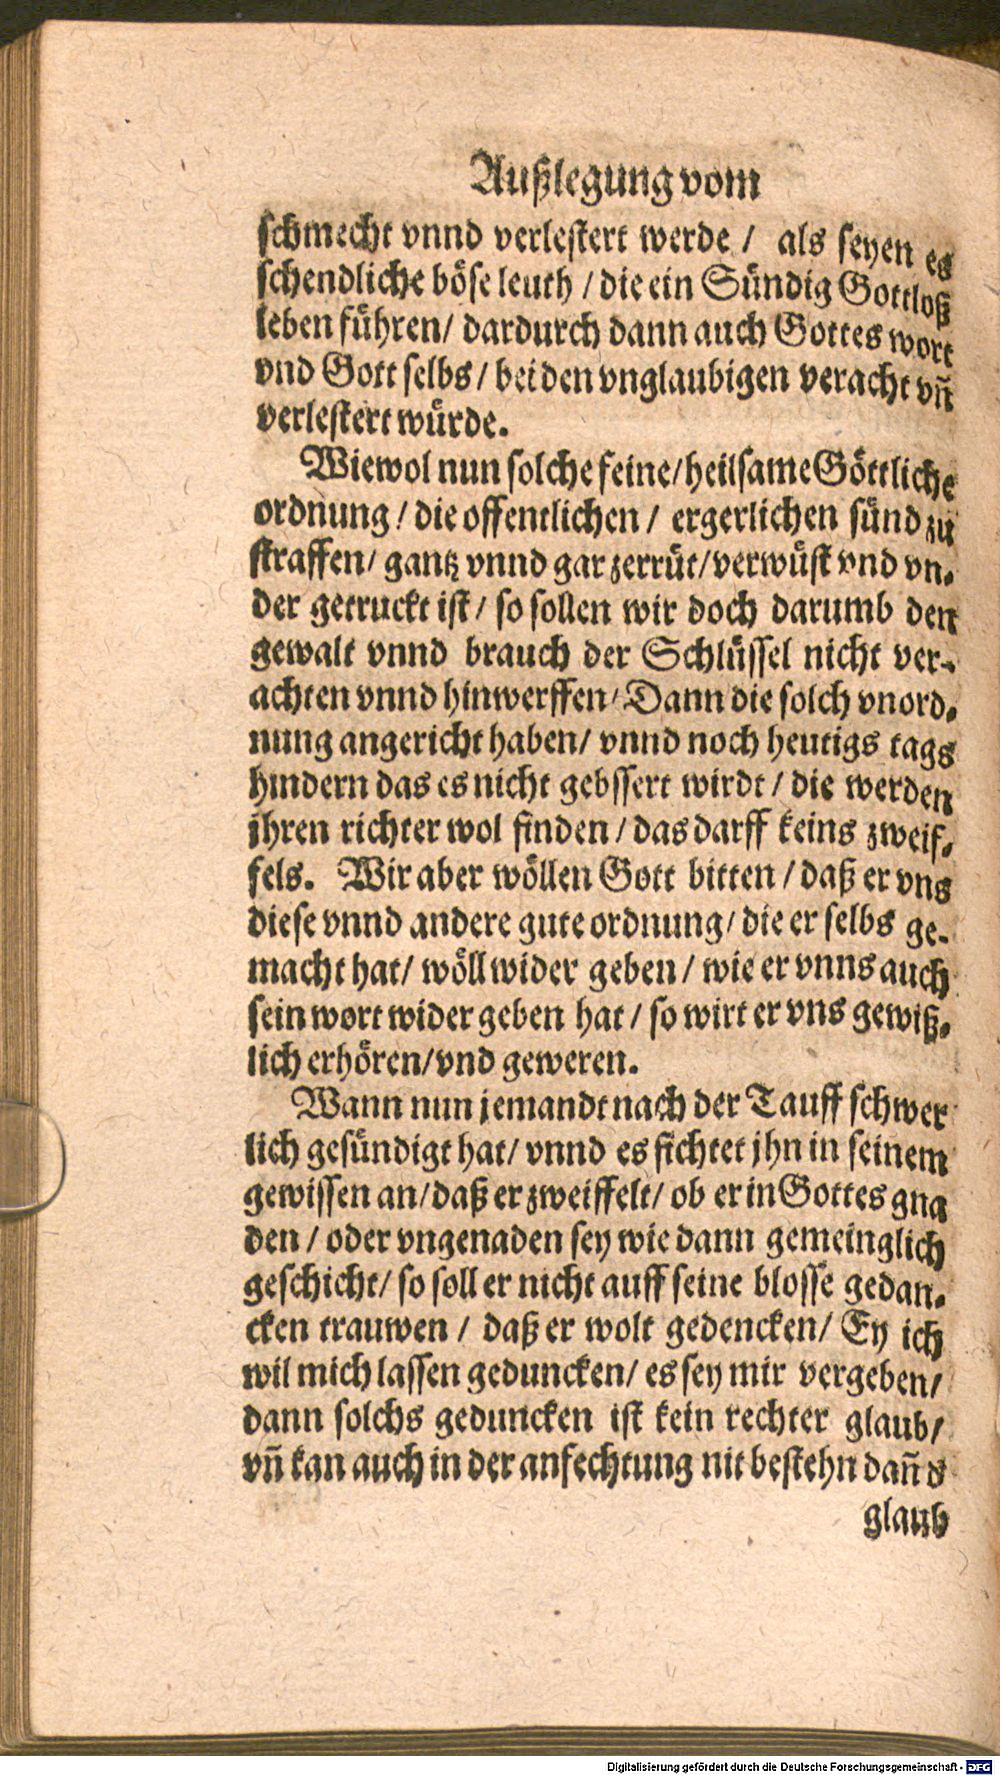 Außlegung vom
schmecht vnnd verlestert werde / als seyen es
schendliche böse leuth / die ein Sündig Gottloß
leben führen / dardurch dann auch Gottes wort
vnd Gott selbs / bei den vnglaubigen veracht vñ
verlestert würde.
Wiewol nun solche feine / heilsame Göttliche
ordnung / die offentlichen / ergerlichen sünd zu
straffen / gantz vnnd gar zerrüt / verwüst vnd vn-
der getruckt ist / so sollen wir doch darumb den
gewalt vnnd brauch der Schlüssel nicht ver-
achten vnnd hinwerffen / Dann die solch vnord-
nung angericht haben / vnnd noch heutigs tags
hindern das es nicht gebssert wirdt / die werden
jhren richter wol finden / das darff keins zweif-
fels. Wir aber wöllen Gott bitten / daß er vns
diese vnnd andere gute ordnung / die er selbs ge-
macht hat / wöll wider geben / wie er vnns auch
sein wort wider geben hat / so wirt er vns gewiß-
lich erhören / vnd geweren.
Wann nun jemandt nach der Tauff schwer
lich gesündigt hat / vnnd es fichtet jhn in seinem
gewissen an / daß er zweiffelt / ob er in Gottes gna
den / oder vngenaden sey wie dann gemeinglich
geschicht / so soll er nicht auff seine blosse gedan-
cken trauwen / daß er wolt gedencken / Ey ich
wil mich lassen geduncken / es sey mir vergeben /
dann solchs geduncken ist kein rechter glaub /
vñ kan auch in der anfechtung nit bestehn dañ d
glaub
Digitalisierung gefördert durch die Deutsche Forschungsgemeinschaft - DFG